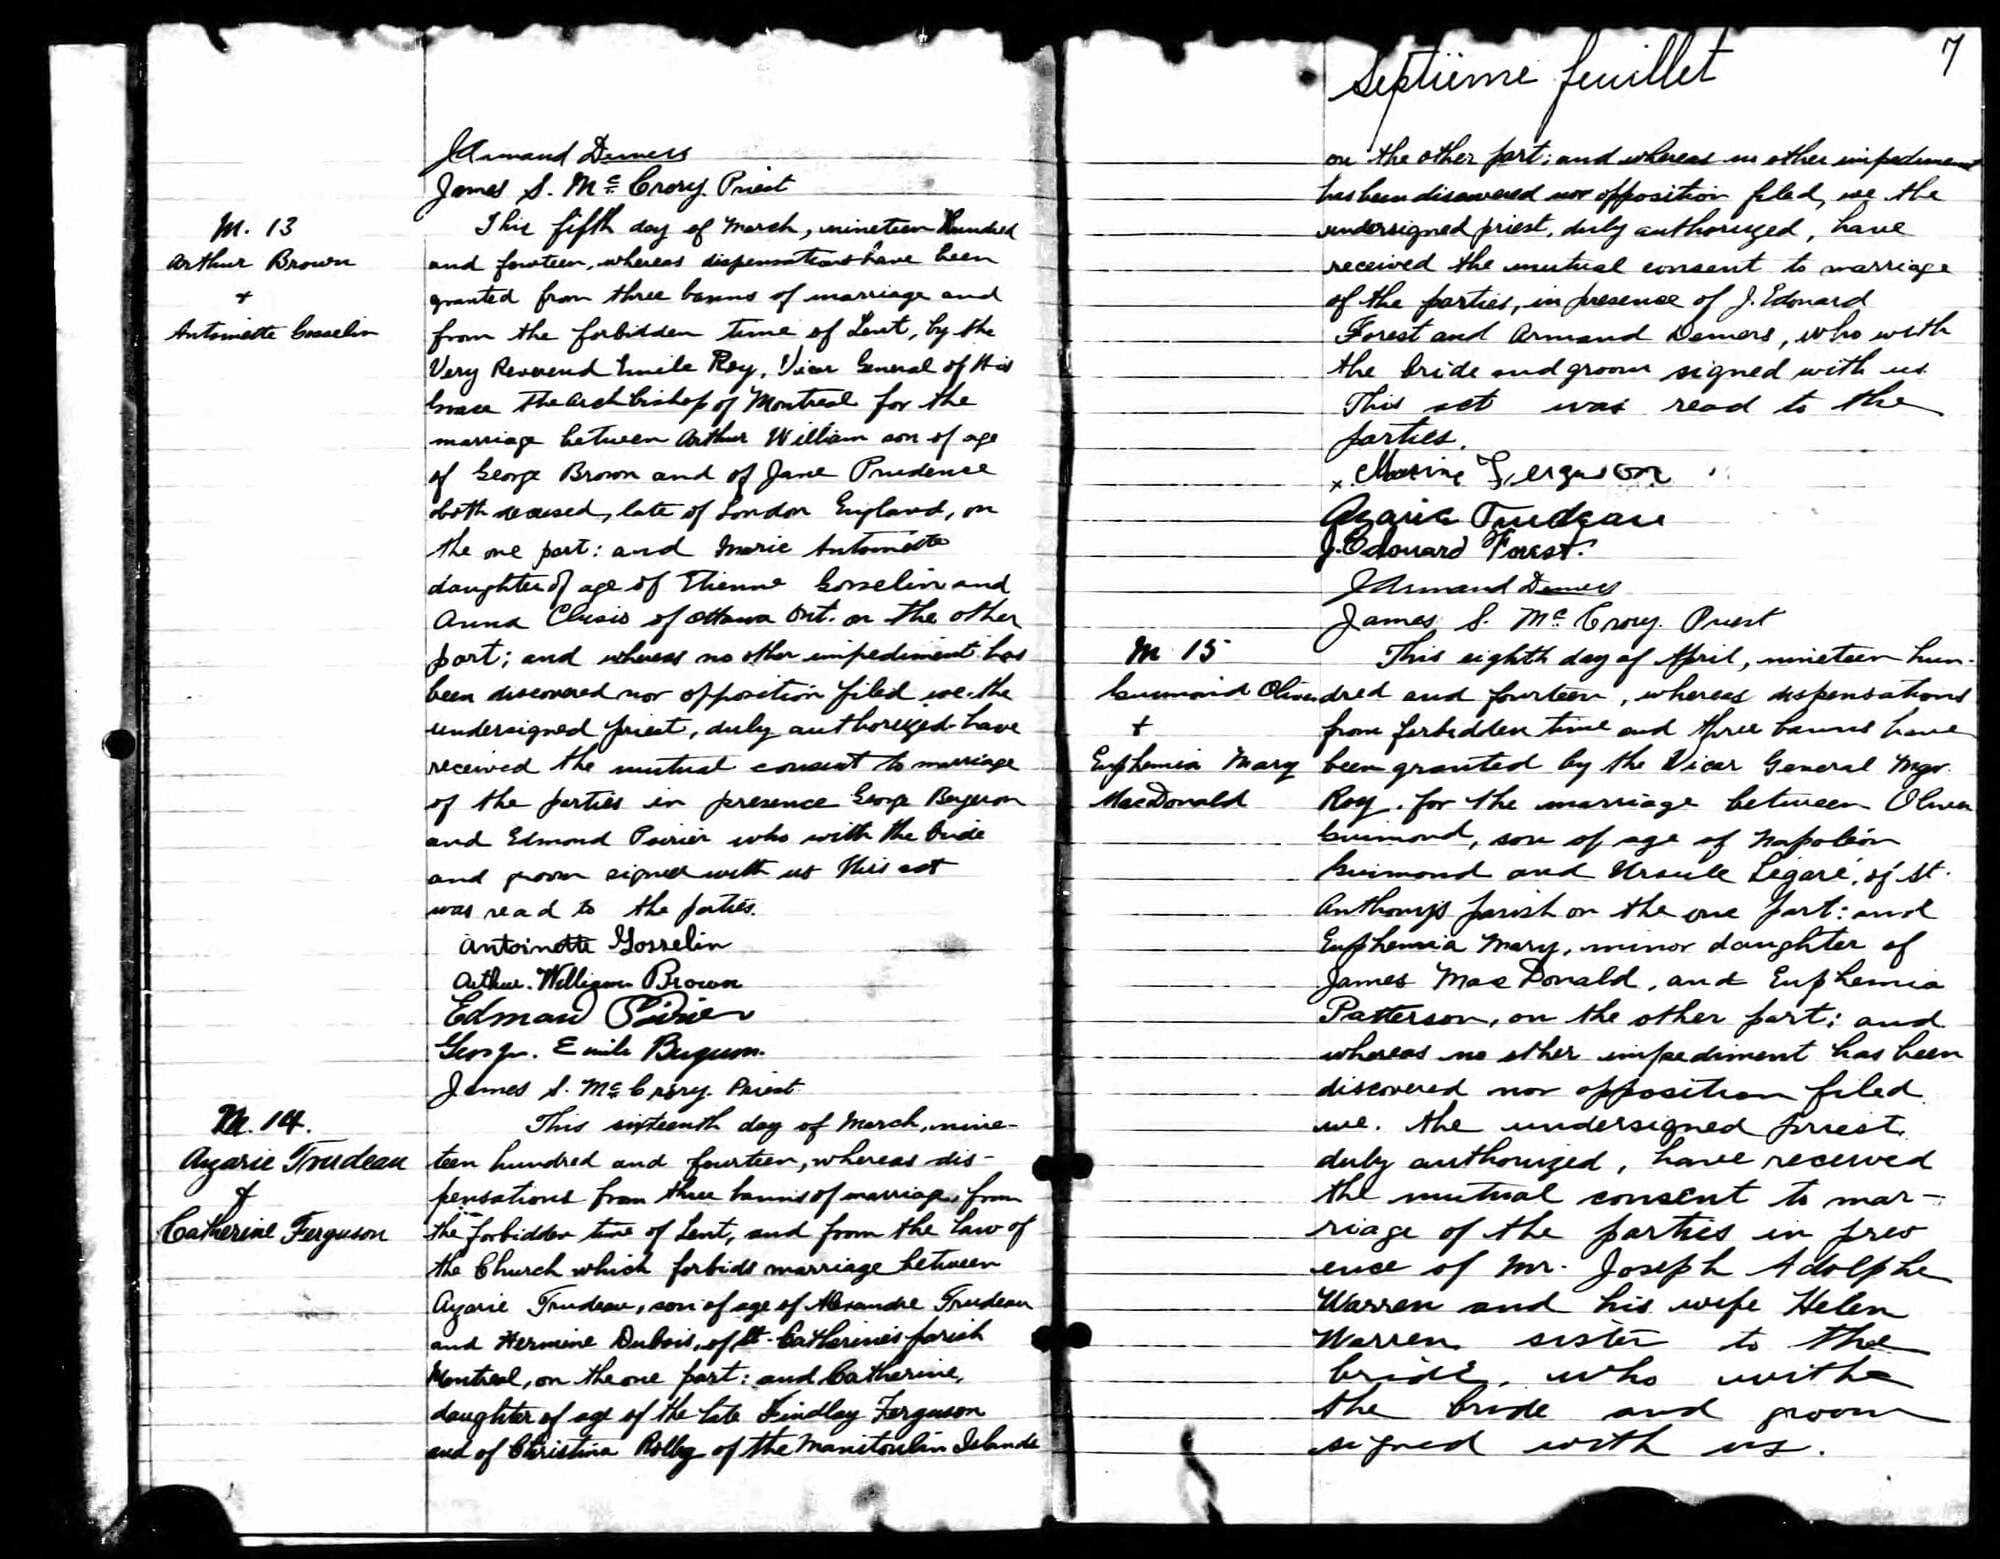 JArmand Demers
James S. McCrory. Priest
M. 13
Arthur Brown
+
Antoinette Gosselin
This fifth day of March, nineteen hundred
and fourteen, whereas dispensations have been
granted from three banns of marriage and
from the forbidden time of Lent, by the
Very Reverend Emile Roy, Vicar General of His
Grace the Archbishop of Montreal for the
marriage between Arthur William son of age
of George Brown and of Jane Prudence
both deceased, late of London England, on
the one part: and Marie Antoinette
daughter of age of Etienne Gosselin and
Anna of Ottawa Ont. on the other
part; and whereas no other impediment has
been discovered nor opposition filed we the
undersigned priest, duly authorized have
received the mutual consent to marriage
of the parties in presence George Bergeron
and Edmond Poirier who with the bride
and groom signed with us This act
was read to the parties.
Antoinette Gosselin
Arthur. William Brown
Edmond Poirier
George. Emile
James S. McCrory. Priest
M. 14.
Azarie Trudeau
&
Catherine Ferguson
This sixteenth day of March, nine-
teen hundred and fourteen, whereas dis-
pensations from three banns of marriage, from
the forbidden time of Lent, and from the law of
the Church which forbids marriage between
Azarie Trudeau, son of age of Alexandre Trudeau
and Hermine Dubois, of St. Catherine's parish
Montreal, on the one part: and Catherine,
daughter of age of the late Findlay Ferguson
and of Christina of the Manitoulin Islands
7
Septième feuillet
on the other part: and whereas no other impediment
has been discovered nor opposition filed, we the
undersigned priest, duly authorized, have
received the mutual consent to marriage
of the parties, in presence of J. Edouard
Forest and Armand Demers, who with
the bride and groom signed with us.
This act was read to the
parties.
x Ferguson
Azarie Trudeau
J. Edouard Forest.
JArmand Demers
James S. McCrory. Priest
M 15
Guimond Oliver
+
Euphemia Mary
MacDonald
This eighth day of April, nineteen hun-
dred and fourteen, whereas dispensations
from forbidden time and three banns have
been granted by the Vicar General Mgr.
Roy. for the marriage between Oliver
Guimond, son of age of Napoléon
Guimond and Ursule Légaré, of St.
Anthony's parish on the one part: and
Euphemia Mary, minor daughter of
James MacDonald, and Euphemia
Patterson, on the other part; and
whereas no other impediment has been
discovered nor opposition filed
we. the undersigned priest,
duly authorized, have received
the mutual consent to mar-
riage of the parties in pres
ence of Mr. Joseph Adolphe
Warren and his wife Helen
Warren sister to the
bride, who with
the bride and groom
signed with us.